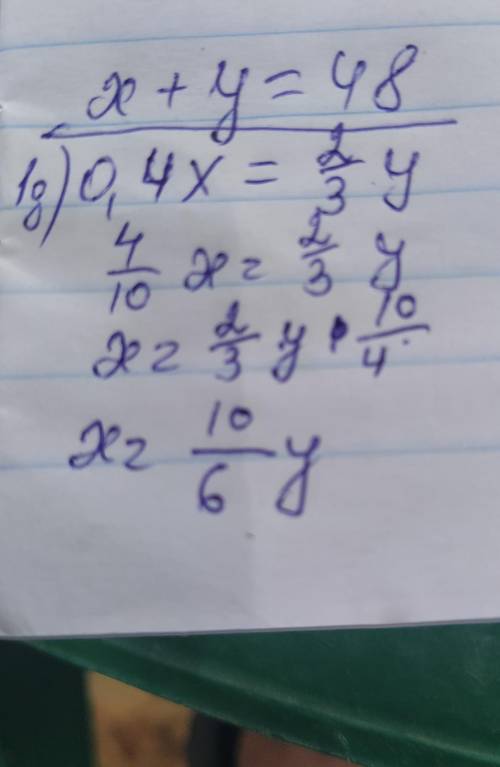 x + y = 48
1g) 0,4x = 2/3 y
4/10 x = 2/3 y
x = 2/3 y · 10/4
x = 10/6 y